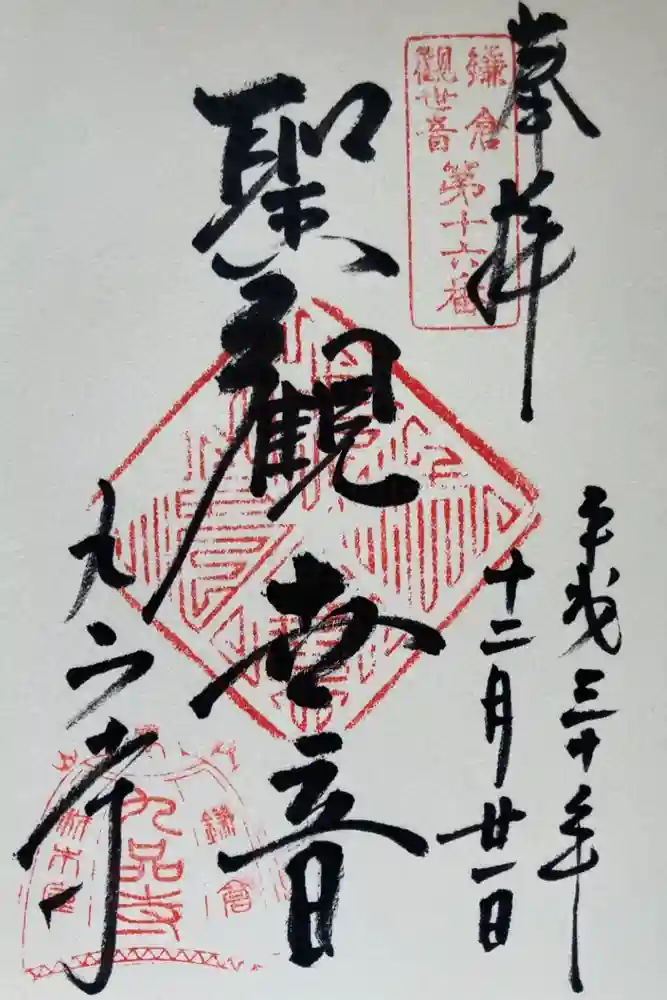 奉拝
鎌倉
觀世音
第十六番
平成三十年
十二月廿一日
聖觀世音
九品寺
鎌倉
九品寺
材木座